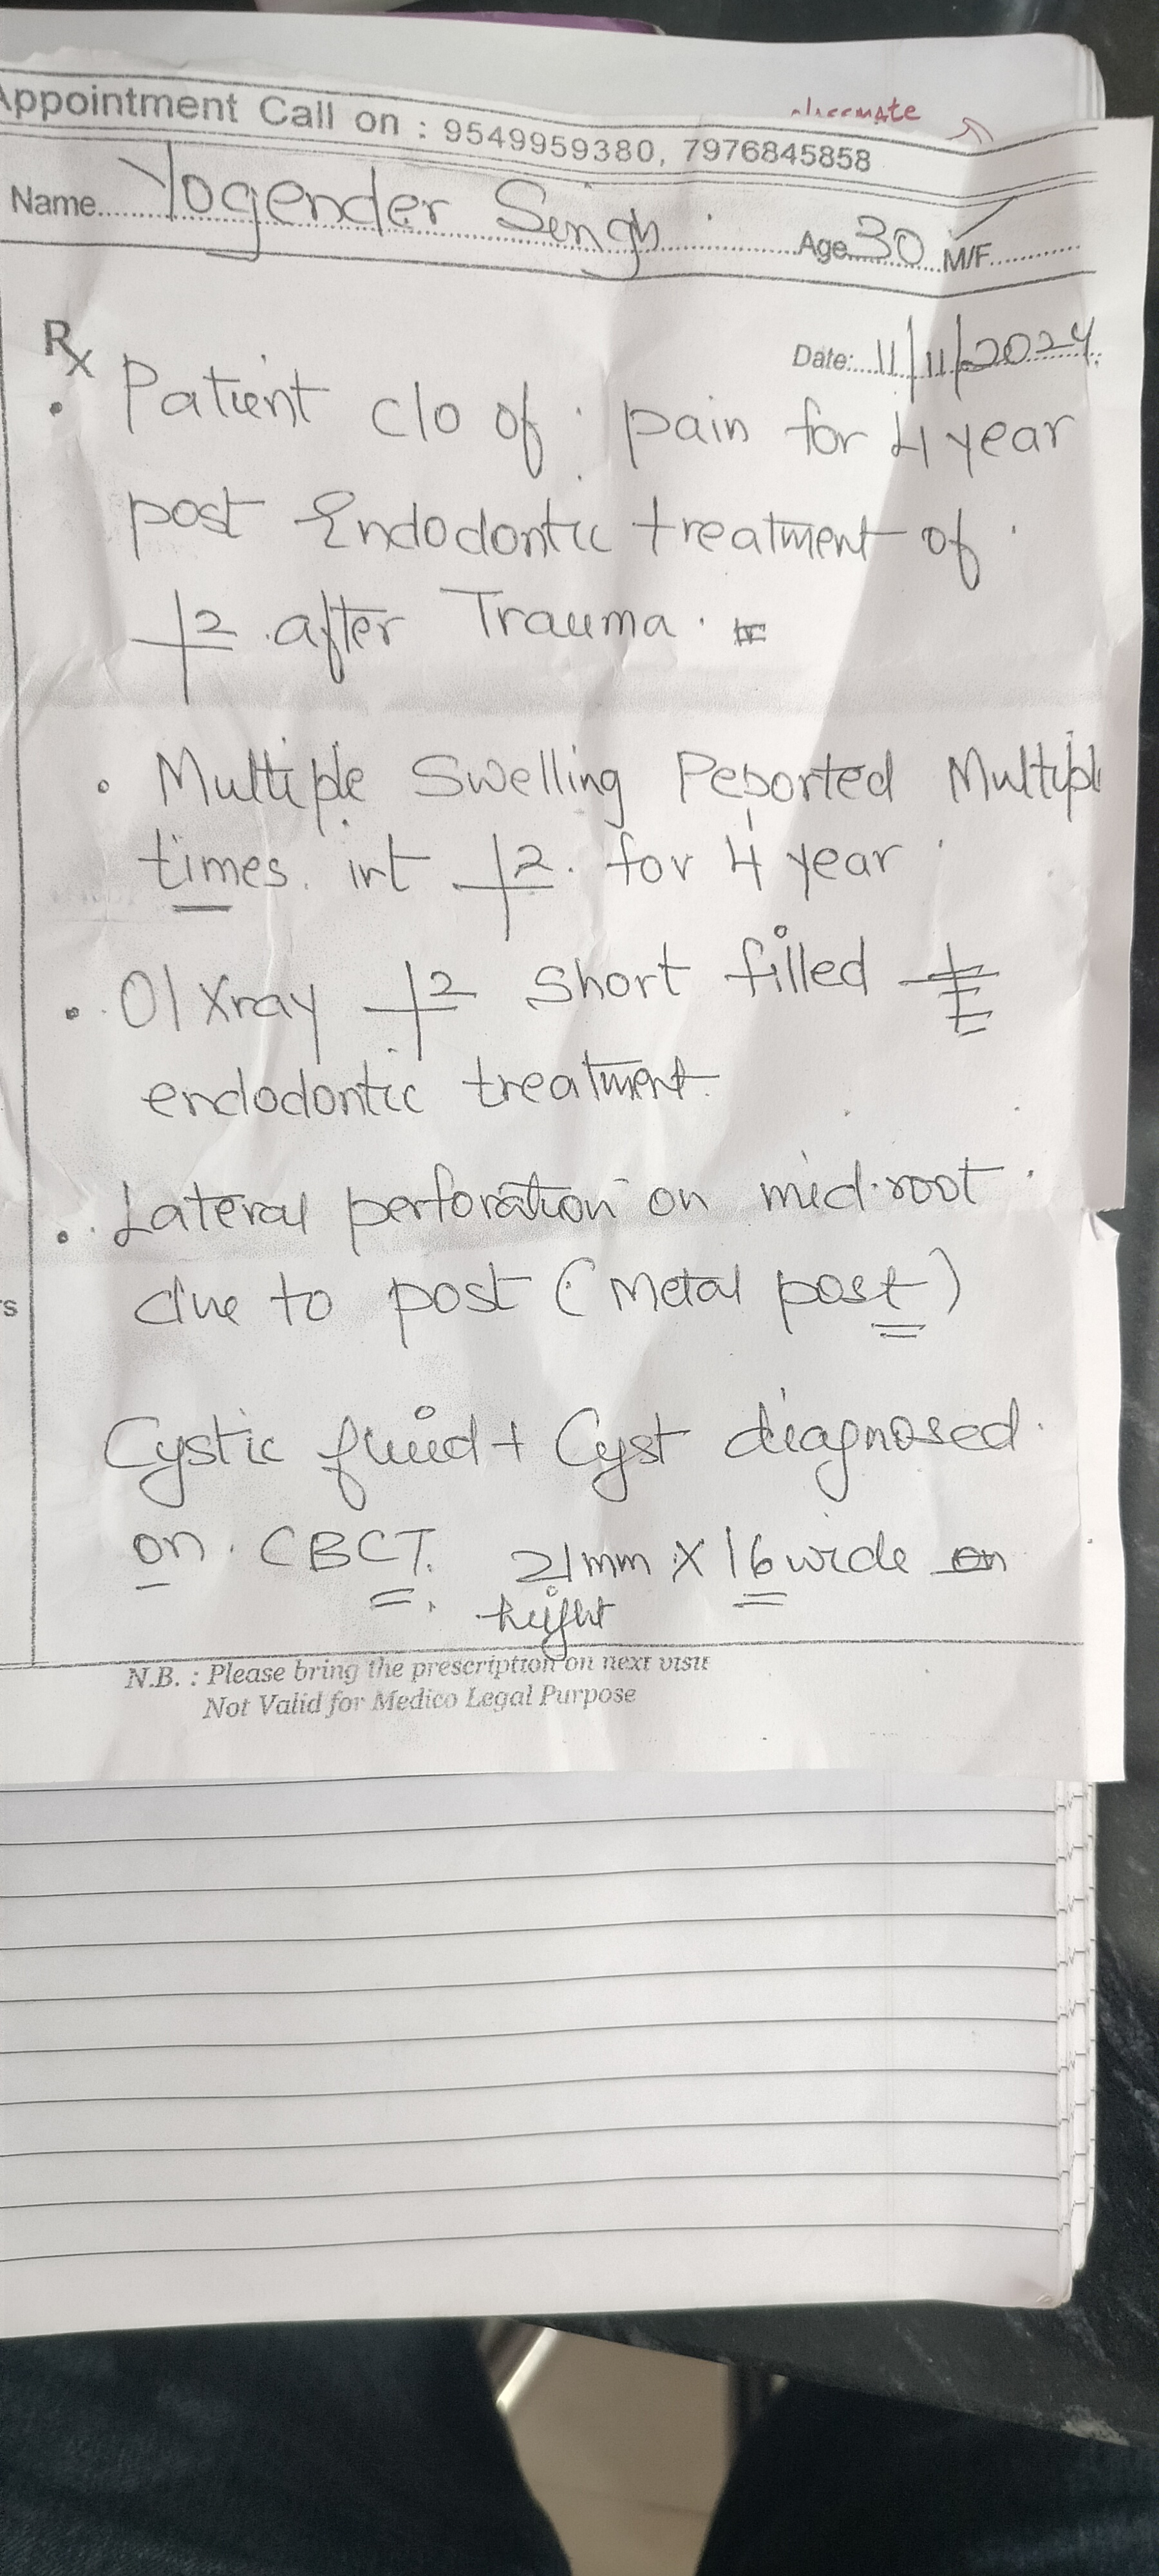 Appointment Call on : 9549959380, 7976845858
classmate
Name Yogender Singh Age 30 M/F
Rx
Date: 11/11/2024
• Patient c/o of pain for 4 year
post Endodontic treatment of
2 after Trauma.
• Multiple Swelling Reported Multipl
times irt 2 for 4 year
• O/ Xray 2 Short filled
endodontic treatment
• Lateral perforation on mid root
due to post (Metal post)
Cystic fluid + Cyst diagnosed
on CBCT. 21mm X 16 wide on
hight
rs
N.B. : Please bring the prescription on next visit
Not Valid for Medico Legal Purpose